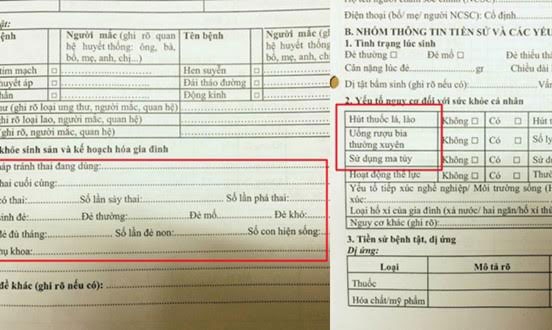 ật:
ệnh
Người mắc (ghi rõ quan hệ huyết thống: ông, bà, bố, mẹ, anh, chị...)
Tên bệnh
Người mắc (gh
hệ huyết thống
bố, mẹ, anh, ch
tim mạch □
Hen suyễn □
huyết áp □
Đái tháo đường □
thần □
Động kinh □
hư (ghi rõ loại ung thư, người mắc, quan hệ)
ghi rõ loại lao, người mắc, quan hệ)
ghi rõ, người mắc, quan hệ)
khỏe sinh sản và kế hoạch hóa gia đình
háp tránh thai đang dùng:
hai cuối cùng:
có thai: Số lần sảy thai: Số lần phá thai:
sinh đẻ: Đẻ thường: Đẻ mổ Đẻ khó:
đẻ đủ tháng: Số lần đẻ non: Số con hiện sống:
hụ khoa:
đề khác (ghi rõ nếu có):
Điện thoại (bố/ mẹ/ người NCSC): Cố định
B. NHÓM THÔNG TIN TIỀN SỬ VÀ CÁC YẾU
1. Tình trạng lúc sinh
Đẻ thường □ Đẻ mổ □ Đẻ thiếu thá
Cân nặng lúc đẻ gr Chiều dài
Dị tật bẩm sinh (ghi rõ nếu có): Vấn
2. Yếu tố nguy cơ đối với sức khỏe cá nhân
Hút thuốc lá, lào Không □ Có □ Hút t
Uống rượu bia thường xuyên Không □ Có □ Số ly
Sử dụng ma túy Không □ Có □ Sử dụ
Hoạt động thể lực Không □ Có □ Thườ
Yếu tố tiếp xúc nghề nghiệp/ Môi trường sống (
xúc:
Loại hố xí của gia đình (xả nước/ hai ngăn/hố xí thù
Nguy cơ khác (ghi rõ):
3. Tiền sử bệnh tật, dị ứng
Dị ứng:
Loại Mô tả rõ
Thuốc
Hóa chất/mỹ phẩm